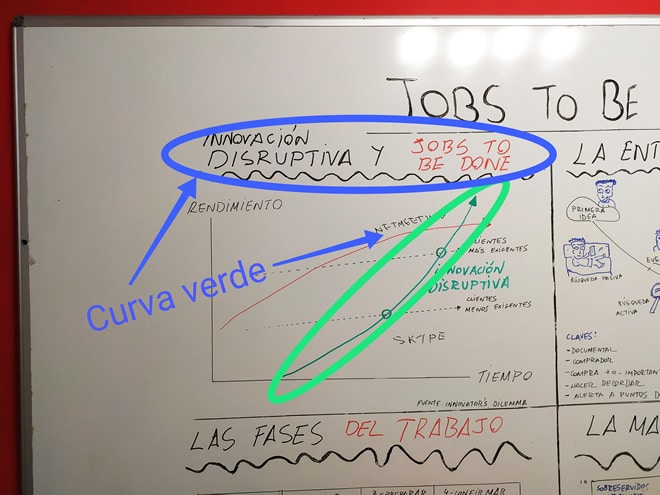 JOBS TO BE
INNOVACIÓN
DISRUPTIVA Y
JOBS TO
BE DONE
RENDIMIENTO
Curva verde
CLIENTES
MÁS EXIGENTES
INNOVACIÓN
DISRUPTIVA
CLIENTES
MENOS EXIGENTES
SKYPE
TIEMPO
FUENTE: INNOVATOR'S DILEMMA
LA ENT
PRIMERA
IDEA
BÚSQUEDA PASIVA
BÚSQUEDA
ACTIVA
CLAVES:
- DOCUMENTAL
- COMPRADOR
- HACER RECORDAR
- ALERTA A PUNTOS D
LAS FASES DEL TRABAJO
LA MA
4-CONFIRMAR